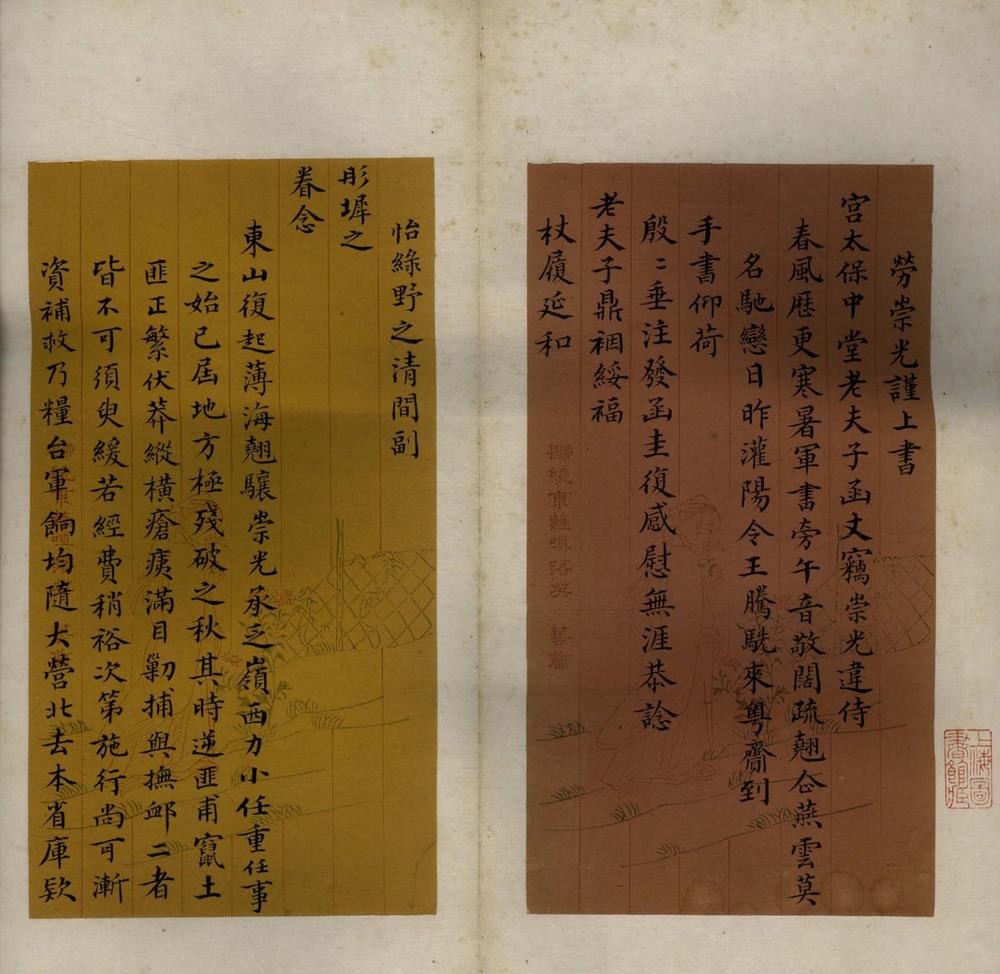 勞崇光謹上書
宮太保中堂老夫子函丈竊崇光違侍
春風歷更寒暑軍書旁午音敬闊疏翹企燕雲莫
名馳戀日昨灌陽令王騰駪來粵齎到
手書仰荷
殷〻垂注發函圭復感慰無涯恭諗
老夫子鼎裀綏福
杖履延和
怡綠野之清閒副
彤墀之
眷念
東山復起薄海翹驤崇光承乏嶺西力小任重任事
之始已屆地方極殘破之秋其時逆匪甫竄土
匪正繁伏莽縱橫瘡痍滿目勦捕與撫卹二者
皆不可須臾緩若經費稍裕次第施行尚可漸
資補救乃糧台軍餉均隨大營北去本省庫欵
上海圖
書館所